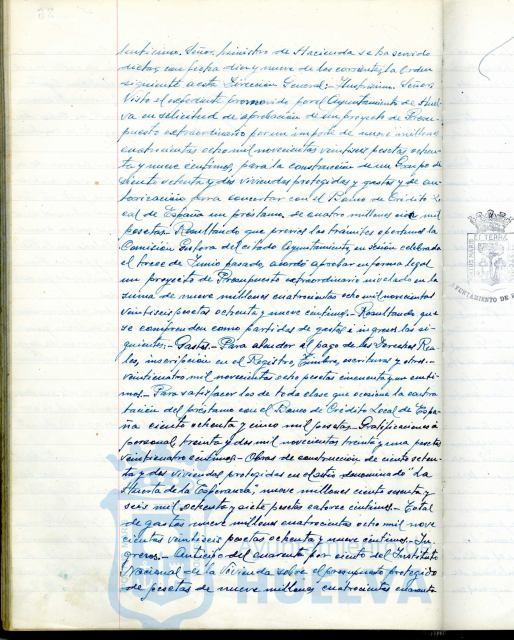 lentísimo. Señor ministro de Hacienda se ha servido
dictar con fecha diez y nueve de los corrientes, la Orden
siguiente a esta Dirección General:- Ilustrísimo Señor:
Visto el expediente promovido por el Ayuntamiento de Huel-
va en solicitud de aprobación de un proyecto de Presu-
puesto extraordinario por un importe de nueve millones
cuatrocientas ocho mil novecientas veintiseis pesetas ochen-
ta y nueve céntimos, para la construcción de un Grupo de
ciento ochenta y dos viviendas protegidas y gastos y de au-
torización para concertar con el Banco de Crédito Lo-
cal de España un préstamo de cuatro millones mil
pesetas.- Resultando que previos los trámites oportunos la
Comisión Gestora del citado Ayuntamiento, en sesión celebrada
el trece de Junio pasado, acordó aprobar en forma legal
un proyecto de Presupuesto extraordinario nivelado en la
suma de nueve millones cuatrocientas ocho mil novecientas
veintiseis pesetas ochenta y nueve céntimos.- Resultando que
se comprenden como partidas de gastos e ingresos las si-
guientes:- Gastos.- Para atender al pago de los Derechos Rea-
les, inscripción en el Registro, Timbre, escrituras y otros.-
veinticuatro mil novecientas ocho pesetas cincuenta y un cénti-
mos.- Para satisfacer los de toda clase que ocasione la contra-
tación del préstamo con el Banco de Crédito Local de Espa-
ña ciento ochenta y cinco mil pesetas.- Gratificaciones a
personal, treinta y dos mil novecientas treinta y una pesetas
veinticuatro céntimos.- Obras de construcción de ciento ochen-
ta y dos viviendas protegidas en el sitio denominado "La
Huerta de la Esperanza", nueve millones ciento sesenta y
seis mil ochenta y siete pesetas catorce céntimos.- Total
de gastos nueve millones cuatrocientas ocho mil nove
cientas veintiseis pesetas ochenta y nueve céntimos.- In-
gresos.- Anticipo del cuarenta por ciento del Instituto
Nacional de la Vivienda sobre el presupuesto protegido
de pesetas de nueve millones cuatrocientas cuarenta
AYUNTAMIENTO DE
HUELVA